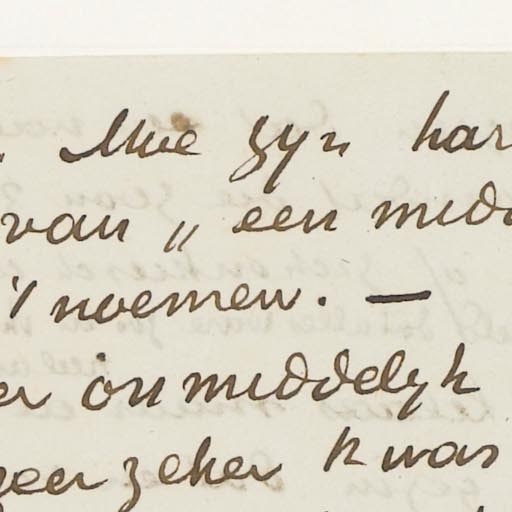 . Mve zyn har
van „ een midd
't noemen. —
er onmiddelyk
zeer zeker k was